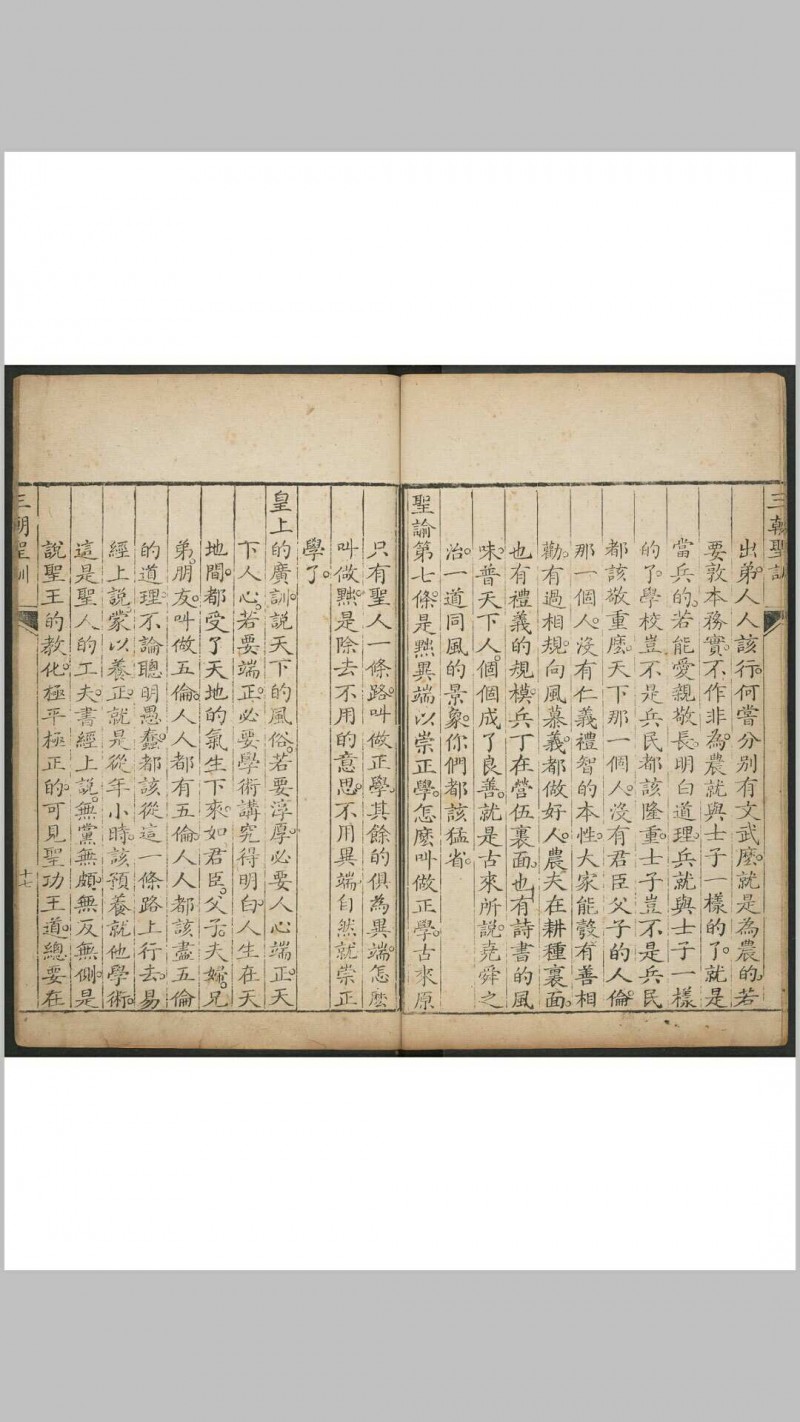 三朝聖訓
出弟。人人該行。何嘗分別有文武麽。就是為農的。若
要敦本務實。不作非為。農就與士子一樣的了。就是
當兵的。若能愛親敬長。明白道理。兵就與士子一樣
的了。學校豈不是兵民都該隆重。士子豈不是兵民
都該敬重麽。天下那一個人。沒有君臣父子的人倫。
那一個人。沒有仁義禮智的本性。大家能彀有善相
勸。有過相規。向風慕義。都做好人。農夫在耕種裏面。
也有禮義的規模。兵丁在營伍裏面。也有詩書的風
味。普天下人。個個成了良善。就是古來所說。堯舜之
治。一道同風的景象。你們都該猛省。
聖諭第七條。是黜異端以崇正學。怎麽叫做正學。古來原
只有聖人一條路。叫做正學。其餘的俱為異端。怎麽
叫做黜。是除去不用的意思。不用異端。自然就崇正
學了。
皇上的廣訓。說天下的風俗。若要淳厚。必要人心端正。天
下人心。若要端正。必要學術講究得明白。人生在天
地間。都受了天地的氣生下來。如君臣。父子。夫婦。兄
弟。朋友。叫做五倫。人人都有五倫。人人都該盡五倫
的道理。不論聰明愚蠢。都該從這一條路上行去。易
經上說。蒙以養正。就是從年小時。該預養就他學術。
這是聖人的工夫。書經上說。無黨無頗。無反無側。是
說聖王的教化。極平極正的。可見聖功王道。總要在
三朝聖訓
十七